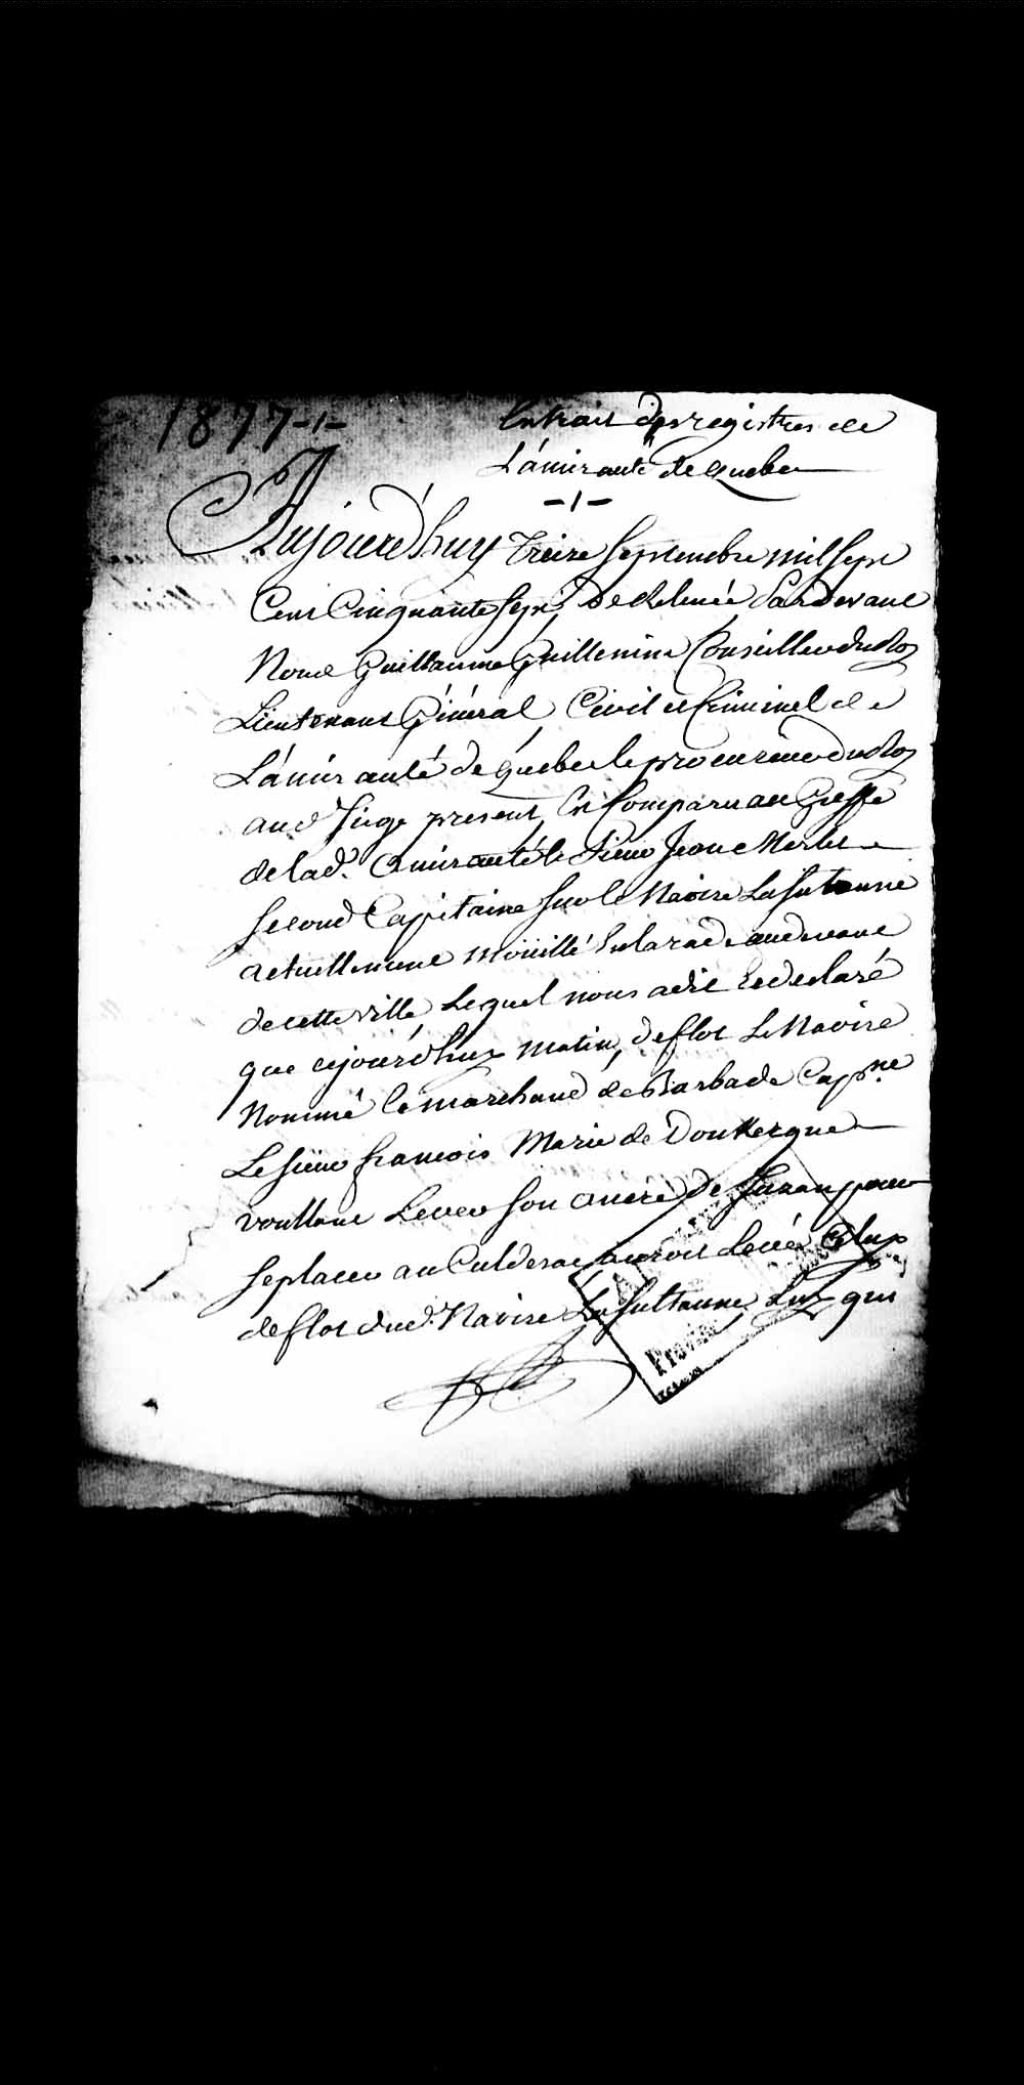 1877-1-
Extrait des registres de
L'amirauté de Quebec
-1-
Aujourd'huy Treize Septembre mil Sept
Cent Cinquante Sept, De Relevée Pardevant
Nous Guillaume Guillemin Conseiller du Roy
Lieutenant Général Civil et Criminel de
L'amirauté de quebec le procureur du Roy
aud Siege present, Est Comparu au Greffe
de lad. amirauté le Sieur Jean Merlet
Second Capitaine Sur le Navire La Sultanne
actuellement moüillé En la rade audevant
de cette ville Lequel nous a dit Et declaré
que cejourd'huy matin, de flot Le Navire
Nommé le marchand de Barbade Capne
Le Sieur francois Marie de Donkerque
voullant Lever Son ancre de pour
Se placer au Culdesac auroit Levé
de flot dud. Navire La Sultanne, qui
Provin